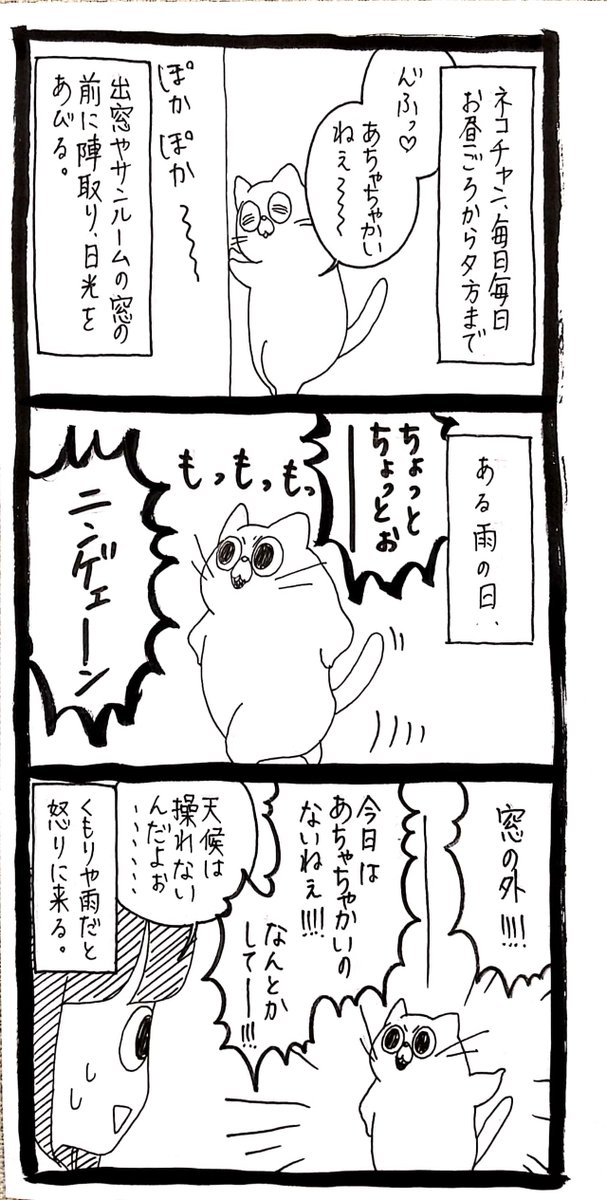 ネコチャン、毎日毎日
お昼ごろから夕方まで
んふっ♡
あちゃちゃかい
ねぇ〜〜〜
ぽかぽか〜〜
出窓やサンルームの窓の
前に陣取り、日光を
あびる。
ある雨の日、
ちょっと
ちょっとぉ
ーー
もっもっもっ
ニンゲェーン
窓の外!!!!
ーー
今日は
あちゃちゃかいの
ないねぇ!!!!
なんとか
してー!!!
天候は
操れない
んだよぉ
……
くもりや雨だと
怒りに来る。